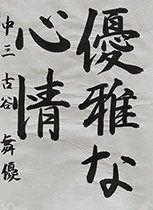 優雅な
心情
中三 古谷 舞優